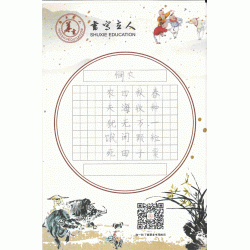 書写立人
SHUXIE EDUCATION
悯农
春种一粒粟
秋收万颗子
四海无闲田
农夫犹饿死